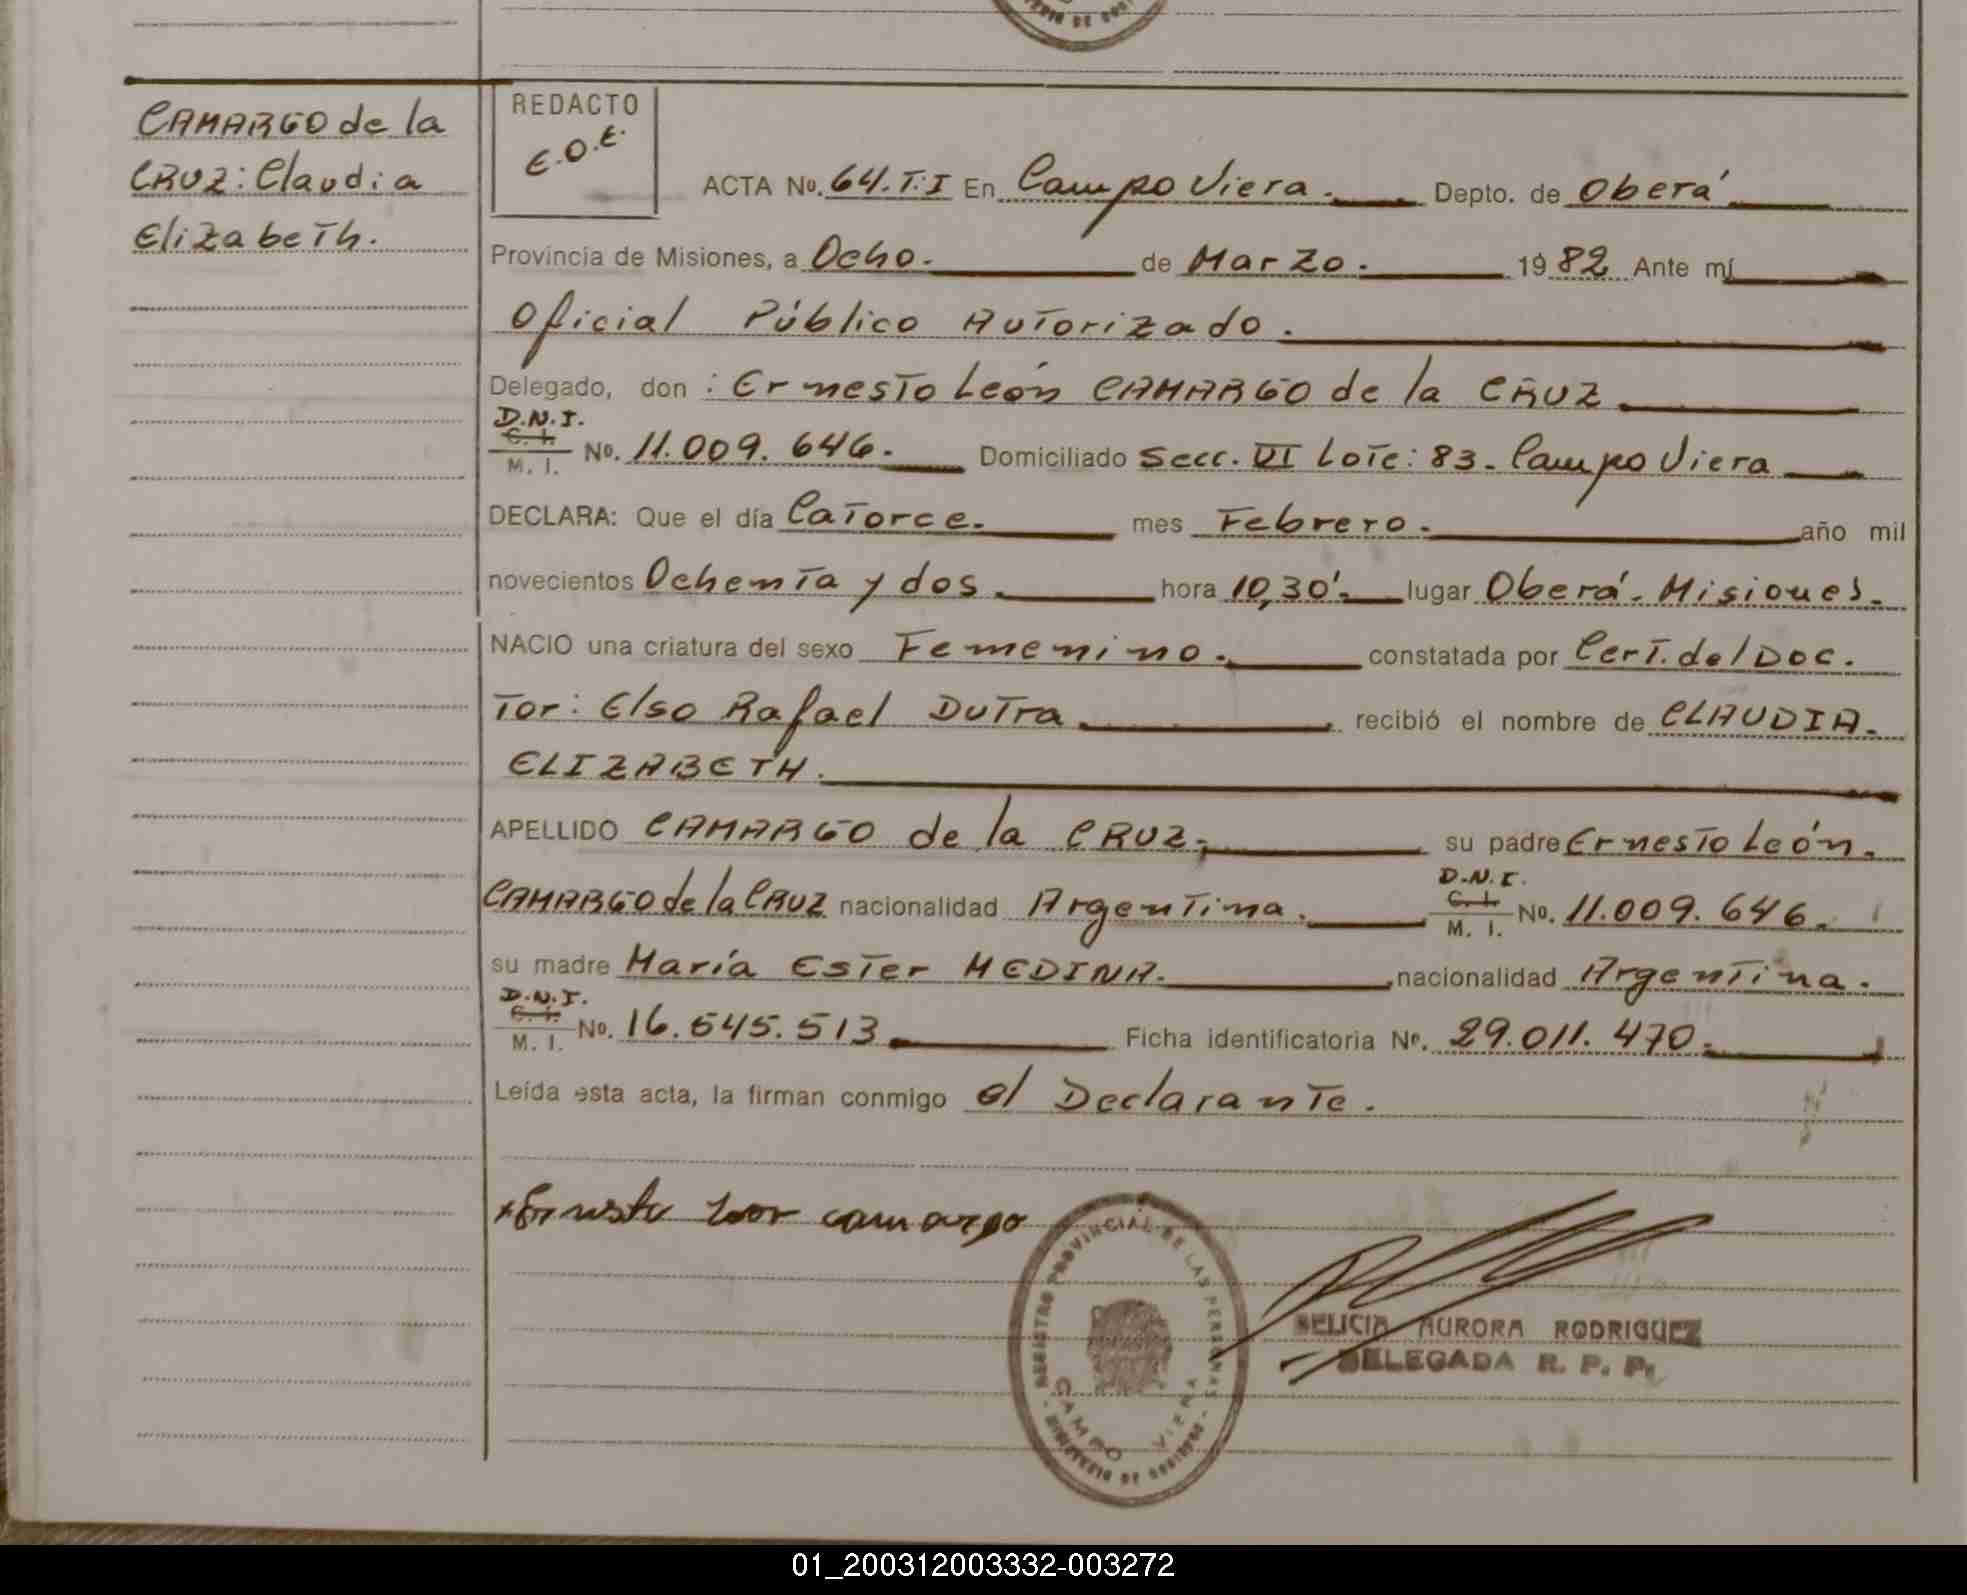 CAMARGO de la
CRUZ: Claudia
Elizabeth.
REDACTO
E.O.E.
ACTA No. 64. T:I En Campo Viera. Depto. de Oberá
Provincia de Misiones, a Ocho. de Marzo. 1982 Ante mí
Oficial Público Autorizado.
Delegado, don : Ernesto León CAMARGO de la CRUZ
D.N.I.
C. I.
M. I. No. 11.009.646. Domiciliado Secc. VI Lote: 83. Campo Viera
DECLARA: Que el día Catorce. mes Febrero. año mil
novecientos Ochenta y dos. hora 10,30'. lugar Oberá. Misiones.
NACIO una criatura del sexo Femenino. constatada por Cert. del Doc.
Tor: Elso Rafael DUTra recibió el nombre de CLAUDIA.
ELIZABETH.
APELLIDO CAMARGO de la CRUZ. su padre Ernesto León.
CAMARGO de la CRUZ nacionalidad Argentina. D.N.I. C. I. M. I. No. 11.009.646.
su madre María Ester MEDINA. nacionalidad Argentina.
D.N.I.
C. I.
M. I. No. 16.545.513 Ficha identificatoria No. 29.011.470.
Leída esta acta, la firman conmigo el Declarante.
camargo
REGISTRO PROVINCIAL DE LAS PERSONAS
CAMPO VIERA
MINISTERIO DE GOBIERNO
BELICIA AURORA RODRIGUEZ
DELEGADA R. P. P.
01_200312003332-003272